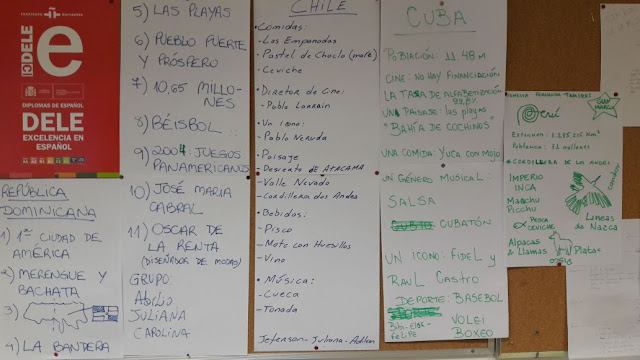 INSTITUTO Cervantes
DELE
é
DIPLOMAS DE ESPAÑOL
DELE
EXCELENCIA EN
ESPAÑOL
REPÚBLICA
DOMINICANA
1) 1ª CIUDAD DE
AMÉRICA
2) MERENGUE Y
BACHATA
3)
4) LA BANDERA
5) LAS PLAYAS
6) PUEBLO FUERTE
Y PRÓSPERO
7) 10,65 MILLO-
NES
8) BÉISBOL
9) 2004: JUEGOS
PANAMERICANOS
10) JOSÉ MARIA
CABRAL
11) OSCAR DE
LA RENTA
(DISEÑADOR DE MODAS)
GRUPO:
Abilio
JULIANA
CAROLINA
CHILE
•Comidas:
- Las Empanadas
- Pastel de Choclo (maíz)
- Ceviche
•Diretor de Cine:
- Pablo Larraín
•Un ícono:
- Pablo Neruda
•Paisaje
- Desierto DE ATACAMA
- Valle Nevado
- Cordillera dos Andes
•Bebidas:
- Pisco
- Mote con Huesillos
- Vino
•Música:
- Cueca
- Tonada
Jeferson - Juliana - Adilson
CUBA
POBLACIÓN: 11.48 M
CINE: NO HAY FINANCIACIÓN
LA TASA DE ALFABETIZACIÓN
99,8%
UN PAISAJE: las playas
"BAHÍA DE COCHINOS"
UNA COMIDA: YUCA CON MOJO
UN GÉNERO MUSICAL:
SALSA
CUBATÓN
UN ICONO: FIDEL Y
RAUL CASTRO
DEPORTE: BASEBOL
VOLEI
BOXEO
FELIPE
Perú
Extension: 1.285.215 Km²
Poblacion: 31 millones
CORDILLERA DE LOS ANDES
IMPERIO
INCA
Machu
Picchu
Condor
PESCA
CEVICHE
Líneas
de Nazca
Alpacas
& Llamas
Plata